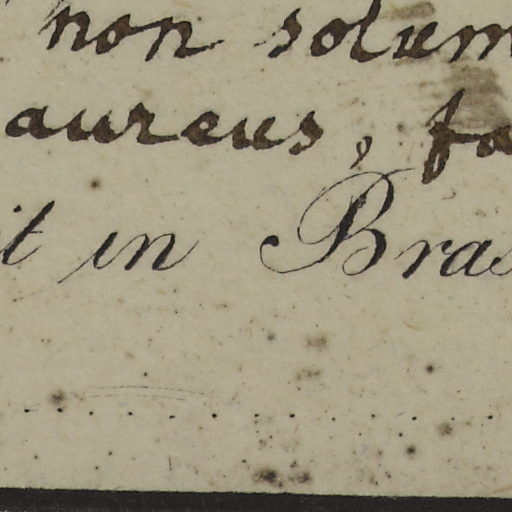 non solum
aureus, fa
it in Bras